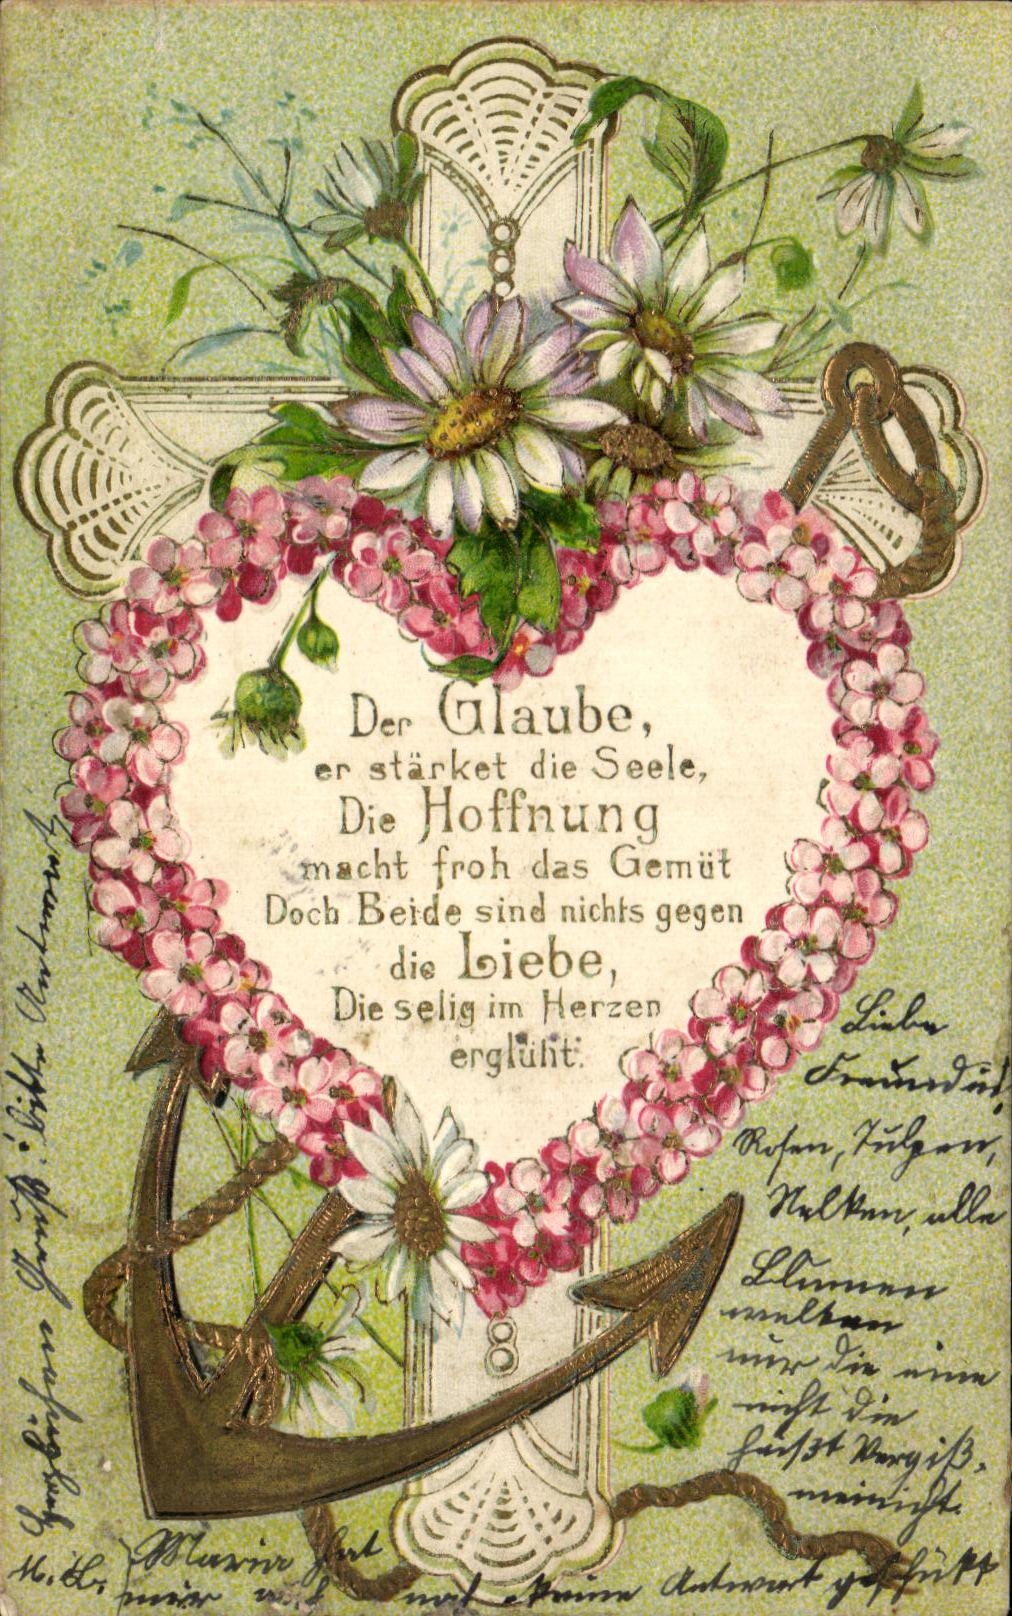 Der Glaube,
er stärket die Seele,
Die Hoffnung
macht froh das Gemüt
Doch Beide sind nichts gegen
die Liebe,
Die selig im Herzen
erglüht.
Liebe
Freundin!
Rosen, Tulpen,
Nelken, alle
Blumen
welken
nur die eine
nicht die
heißt Vergiß-
meinicht.
Maria hat
mir noch keine Antwort geschickt